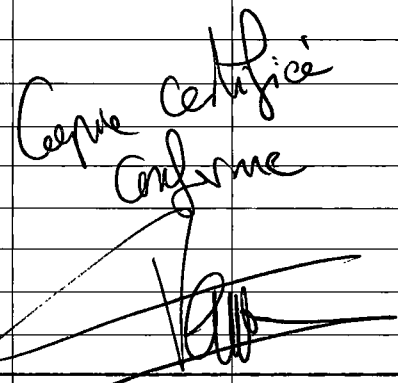 Copie certifié
conforme